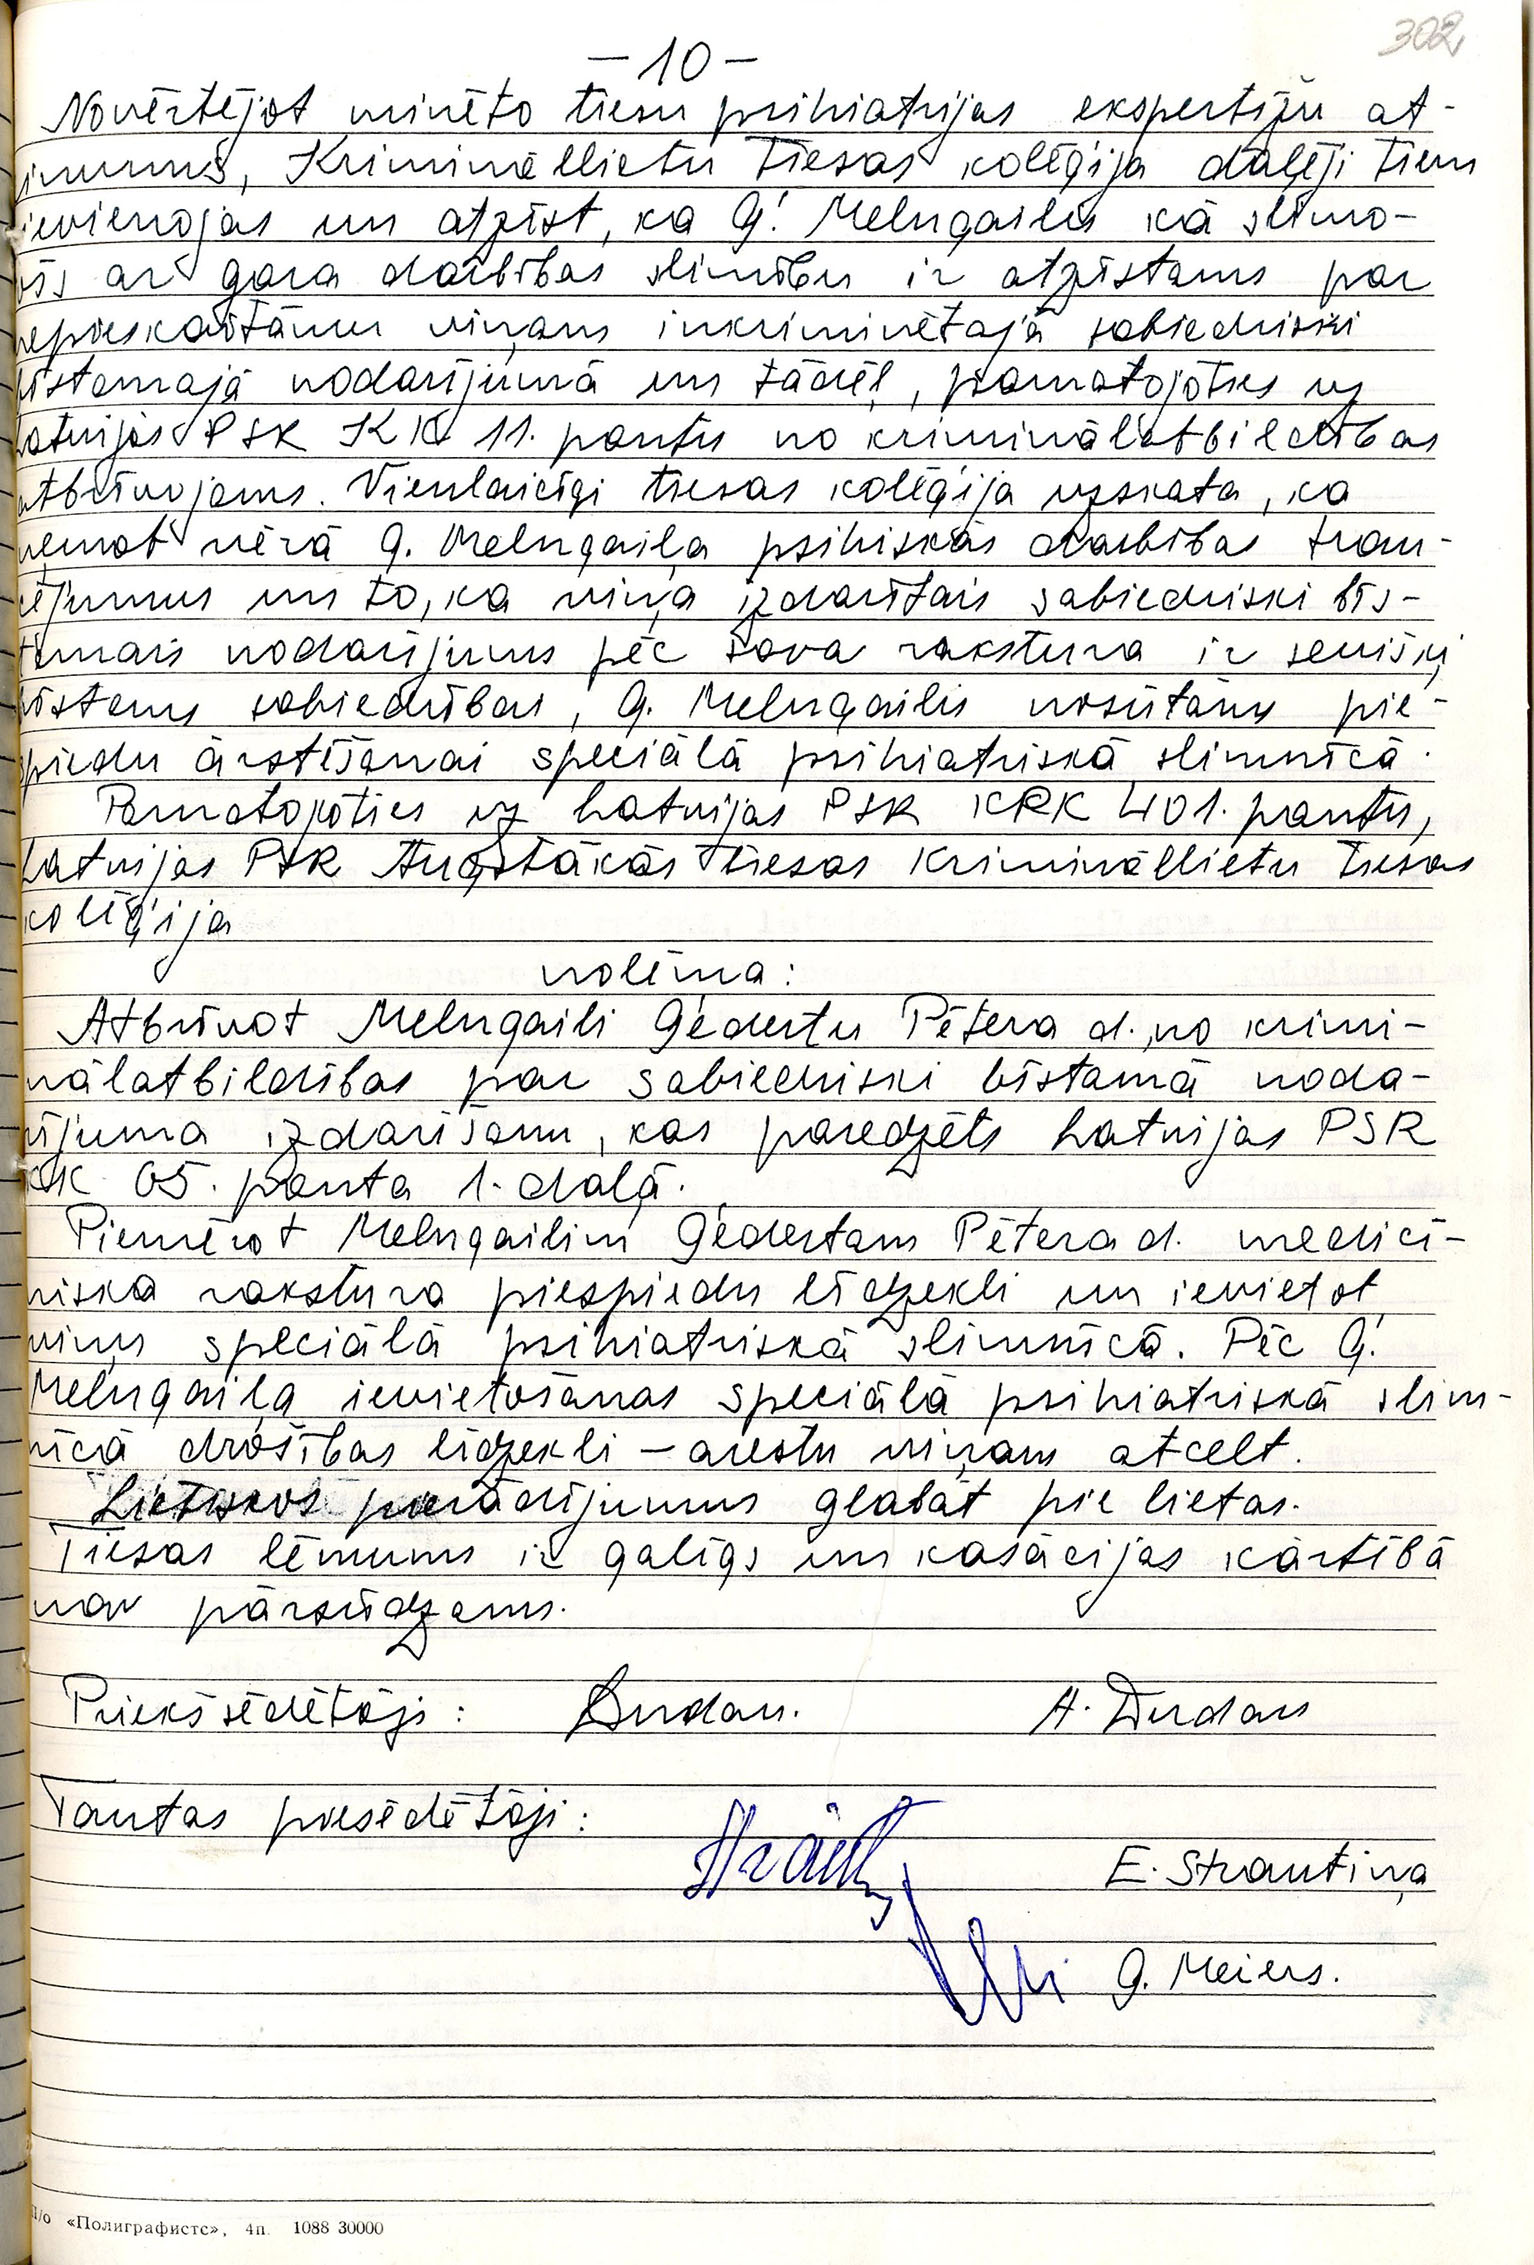 302
- 10 -
Novērtējot minēto tiesu psihiatrijas ekspertīžu at-
zinumus, Krimināllietu tiesas kolēģija daļēji tiem
pievienojas un atzīst, ka Ģ. Melngailis kā slimo-
jošs ar gara darbības slimību ir atzīstams par
nepieskaitāmu viņam inkriminētajā sabiedriski
bīstamajā nodarījumā un tādēļ, pamatojoties uz
Latvijas PSR KK 11. pantu no kriminālatbildības
atbrīvojams. Vienlaicīgi tiesas kolēģija uzskata, ka
ņemot vērā Ģ. Melngaiļa psihiskās darbības trau-
cējumus un to, ka viņa izdarītais sabiedriski bīs-
tamais nodarījums pēc sava rakstura ir sevišķi
bīstams sabiedrībai, Ģ. Melngailis nosūtāms pie-
spiedu ārstēšanai speciālā psihiatriskā slimnīcā.
Pamatojoties uz Latvijas PSR KRK 401. pantu,
Latvijas PSR Augstākās tiesas Krimināllietu tiesas
kolēģija
nolēma:
Atbrīvot Melngaili Ģedertu Pētera d., no krimi-
nālatbildības par sabiedriski bīstamā noda-
rījuma izdarīšanu, kas paredzēts Latvijas PSR
KK 65. panta 1. daļā.
Piemērot Melngailim Ģedertam Pētera d. medicī-
niska rakstura piespiedu līdzekli un ievietot
viņu speciālā psihiatriskā slimnīcā. Pēc Ģ.
Melngaiļa ievietošanas speciālā psihiatriskā slim-
nīcā drošības līdzekli - arestu viņam atcelt.
Lietiskos pierādījumus glabāt pie lietas.
Tiesas lēmums ir galīgs un kasācijas kārtībā
nav pārsūdzams.
Priekšsēdētājs: Dudars. A. Dudars
Tautas piesēdētāji:
E. Strautiņa
G. Meiers.
П/о «Полиграфистс», 4п. 1088 30000